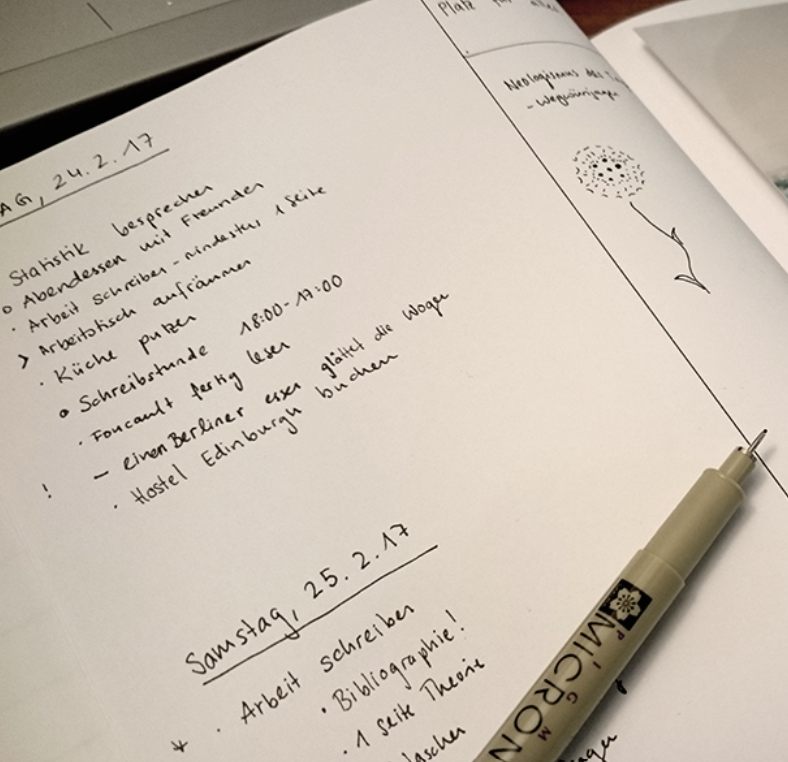 AG, 24.2.17
Statistik besprechen
o Abendessen mit Freunden
· Arbeit schreiben - mindestens 1 Seite
> Arbeitstisch aufräumen
· Küche putzen
o Schreibstunde 18:00-19:00
· Foucault fertig lesen
! – einen Berliner essen glättet die Wogen
· Hostel Edinburgh buchen
Samstag, 25.2.17
* · Arbeit schreiben
· Bibliographie!
· 1 Seite Theorie
Platz für alles
Neologismus des
PIGMA
MICRON